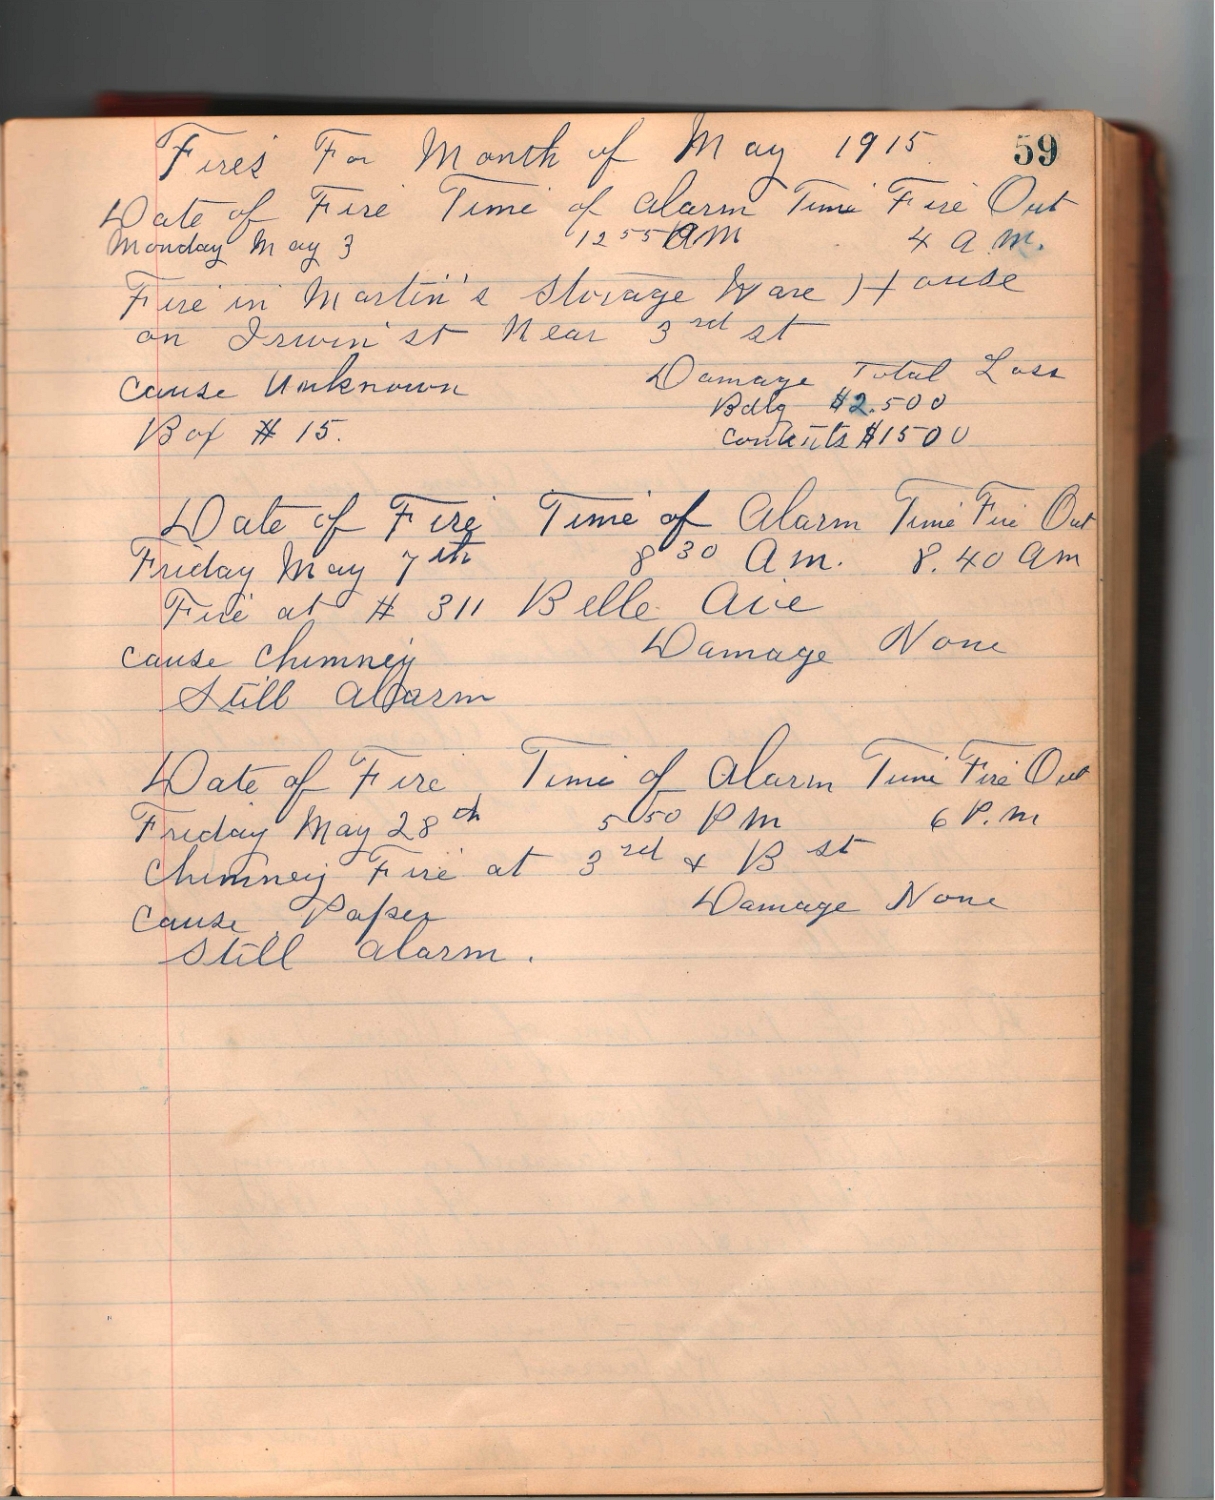 Fires For Month of May 1915 59
Date of Fire Time of Alarm Time Fire Out
Monday May 3 12 55 AM 4 A.M.
Fire in Martin's Storage Ware House
on Irwin st Near 3rd st
Cause Unknown Damage Total Loss
Bdlg $2.500
Box # 15. Contents $1500
Date of Fire Time of Alarm Time Fire Out
Friday May 7th 8 30 A.m. 8.40 Am
Fire at # 311 Belle Ave
Cause Chimney Damage None
Still Alarm
Date of Fire Time of Alarm Time Fire Out
Friday May 28th 5 50 PM 6 P.M
Chimney Fire at 3rd & B st
Cause Paper Damage None
Still Alarm.